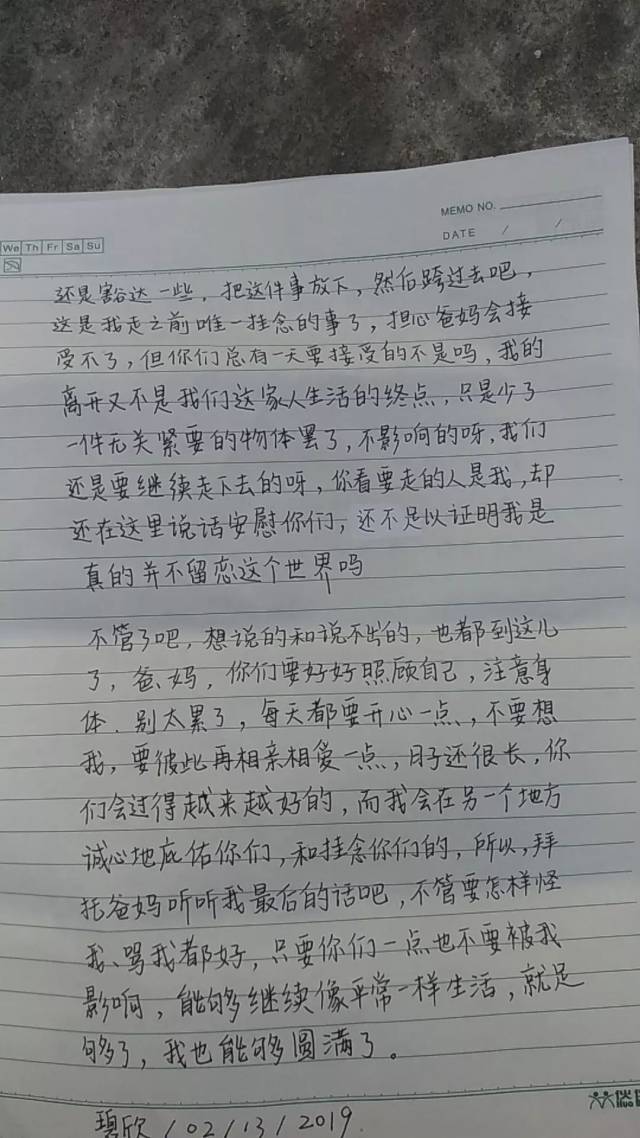 MEMO NO.
We Th Fr Sa Su
DATE / /
还是豁达一些，把这件事放下，然后跨过去吧，
这是我走之前唯一挂念的事了，担心爸妈会接
受不了，但你们总有一天要接受的不是吗，我的
离开又不是我们这家人生活的终点，只是少了
一件无关紧要的物体罢了，不影响的呀，我们
还是要继续走下去的呀，你看要走的人是我，却
还在这里说话安慰你们，还不足以证明我是
真的并不留恋这个世界吗
不管了吧，想说的和说不出的，也都到这儿
了，爸、妈，你们要好好照顾自己，注意身
体、别太累了，每天都要开心一点，不要想
我，要彼此再相亲相爱一点，日子还很长，你
们会过得越来越好的，而我会在另一个地方
诚心地庇佑你们，和挂念你们的，所以，拜
托爸妈听听我最后的话吧，不管要怎样怪
我、骂我都好，只要你们一点也不要被我
影响，能够继续像平常一样生活，就足
够了，我也能够圆满了。
碧欣/02/13/2019